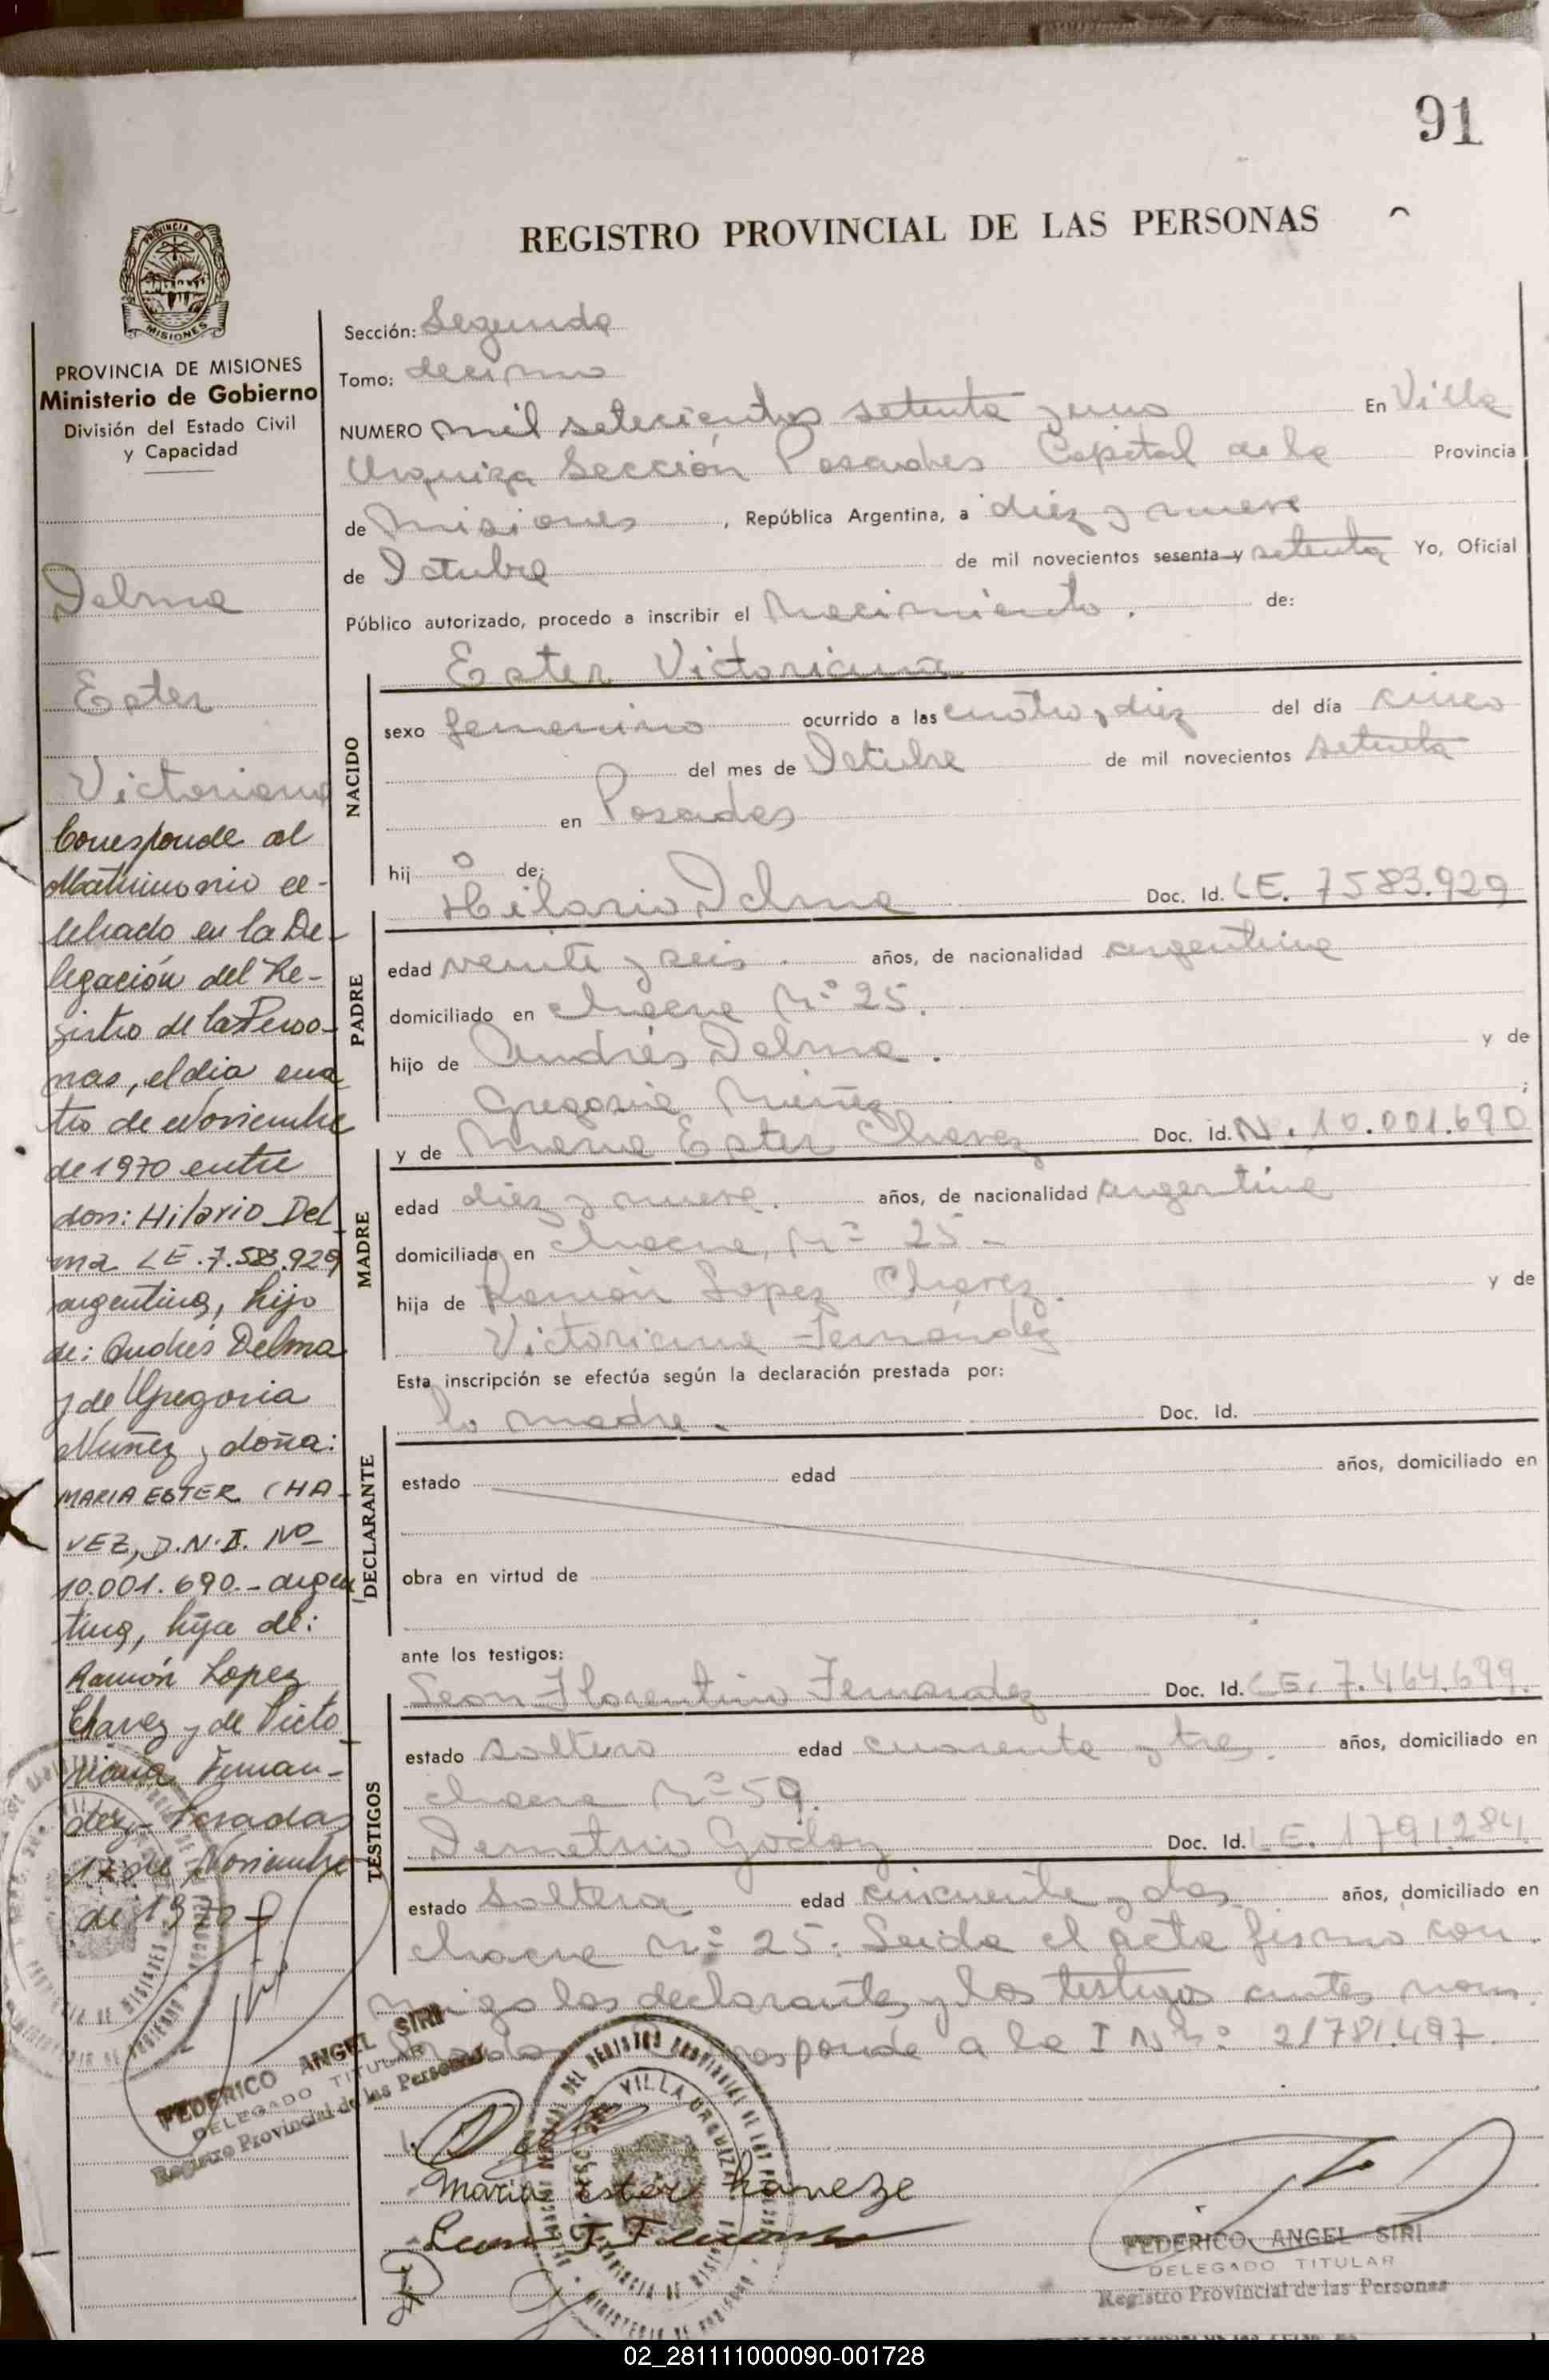 91
REGISTRO PROVINCIAL DE LAS PERSONAS
PROVINCIA DE MISIONES
Ministerio de Gobierno
División del Estado Civil
y Capacidad
Delma
Ester
Victoriana
Corresponde al
Matrimonio ce-
lebrado en la De-
legación del Re-
gistro de las Perso-
nas, el dia cua
tro de Noviembre
de 1970 entre
don: Hilario Del
ma LE.7.583.929
argentino, hijo
de: Andrés Delma
y de Gregoria
Nuñez y doña:
MARIA ESTER CHA-
VEZ, D.N.I. Nº
10.001.690.- argen
tina, hija de:
Ramón Lopez
Chavez y de Victo
riana Fernan-
dez- Posadas
17 de Noviembre
de 1970
FEDERICO ANGEL SIRI
DELEGADO TITULAR
Registro Provincial de las Personas
Sección: Segunda
Tomo: decimo
NUMERO mil setecientos setenta y uno En Villa
Urquiza Sección Posadas Capital de la Provincia
de Misiones, República Argentina, a diez y nueve
de Octubre de mil novecientos sesenta y setenta Yo, Oficial
Público autorizado, procedo a inscribir el Nacimiento. de:
Ester Victoriana
NACIDO
sexo femenino ocurrido a las cuatro, diez del día cinco
del mes de Octubre de mil novecientos setenta
en Posadas
hij a de:
Hilario Delma Doc. Id. LE. 7583.929
PADRE
edad veinte y seis. años, de nacionalidad argentina
domiciliado en chacra Nº 25.
hijo de Andrés Delma. y de
Gregoria Nuñez ;
y de Maria Ester Chavez Doc. Id. N. 10.001.690
MADRE
edad diez y nueve. años, de nacionalidad argentina
domiciliada en chacra, Nº 25-
hija de Ramón Lopez Chavez. y de
Victoriana Fernández
Esta inscripción se efectúa según la declaración prestada por:
la madre. Doc. Id.
DECLARANTE
estado edad años, domiciliado en
obra en virtud de
ante los testigos:
Leon Florentino Fernandez Doc. Id. LE. 7.464.699.
TESTIGOS
estado soltero edad cuarenta y tres. años, domiciliado en
chacra Nº 59.
Demetrio Godoy Doc. Id. LE. 1791284
estado Soltera edad cincuenta y dos años, domiciliado en
chacra Nº 25. Leida el acta firmó con
migo los declarantes y los testigos antes nom
brados a la I Nº 21781.497.
Maria Ester haveze
Leon F. Fernandez
VILLA URQUIZA
FEDERICO ANGEL SIRI
DELEGADO TITULAR
Registro Provincial de las Personas
02_281111000090-001728